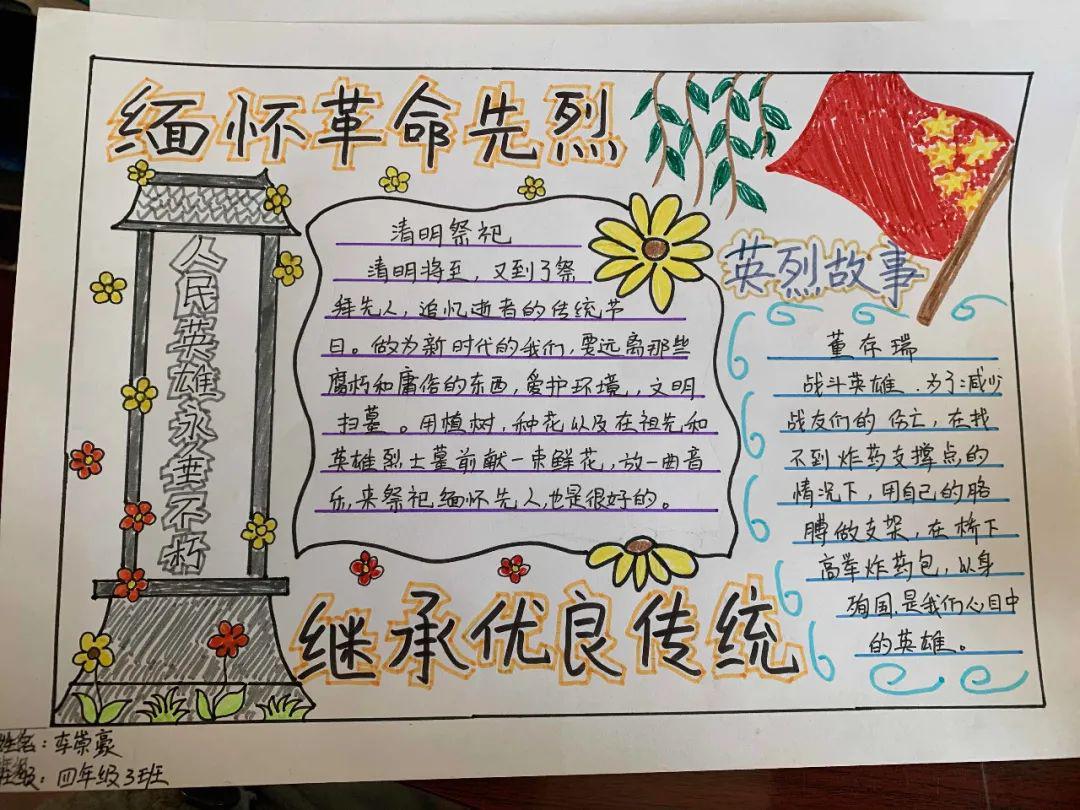 缅怀革命先烈
人民英雄永垂不朽
清明祭祀
清明将至，又到了祭
拜先人，追忆逝者的传统节
日。做为新时代的我们，要远离那些
腐朽和庸俗的东西，爱护环境，文明
扫墓。用植树，种花以及在祖先和
英雄烈士墓前献一束鲜花，放一曲音
乐，来祭祀缅怀先人，也是很好的。
英烈故事
董存瑞
战斗英雄．为了减少
战友们的伤亡，在找
不到炸药支撑点的
情况下，用自己的胳
膊做支架，在桥下
高举炸药包，以身
殉国．是我们心目中
的英雄。
继承优良传统
姓名：李崇豪
班级：四年级3班